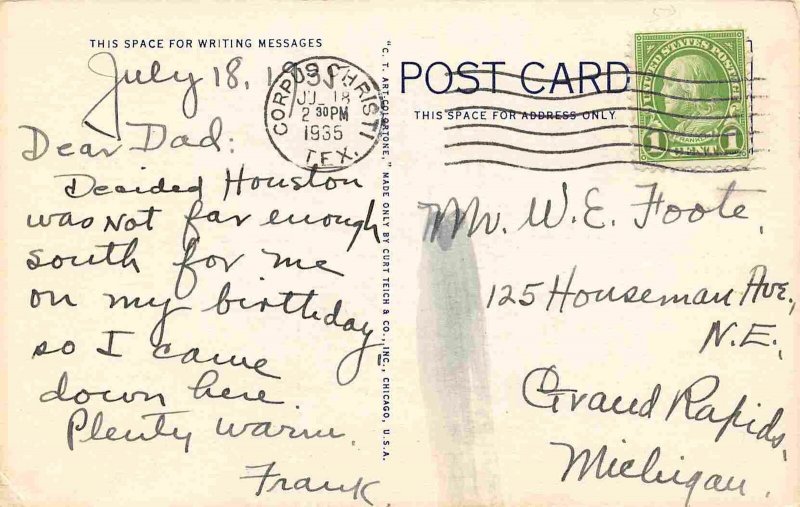 THIS SPACE FOR WRITING MESSAGES
July 18, 1935
Dear Dad:
Decided Houston
was not far enough
south for me
on my birthday
so I came
down here.
Plenty warm.
Frank
CORPUS CHRISTI
JUL 18
2 30 PM
1935
TEX.
"C. T. ART-COLORTONE," MADE ONLY BY CURT TEICH & CO., INC., CHICAGO, U.S.A.
POST CARD
THIS SPACE FOR ADDRESS ONLY
UNITED STATES POSTAGE
FRANKLIN
1 CENT 1
Mr. W. E. Foote,
125 Houseman Ave.,
N.E.,
Grand Rapids,
Michigan.